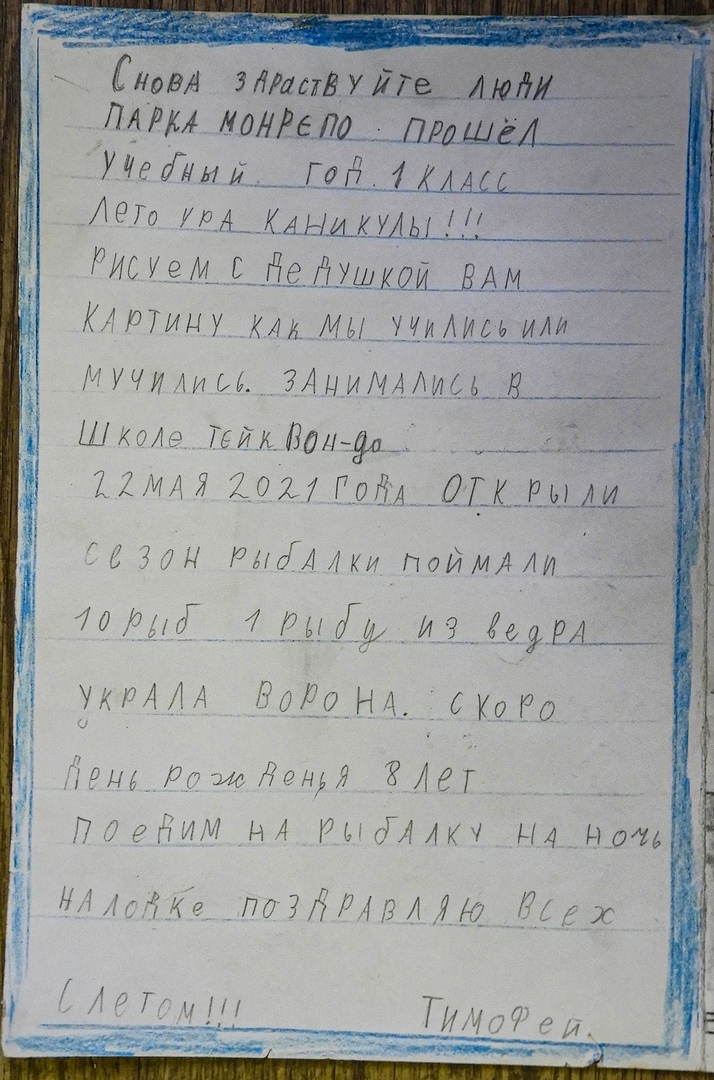 Снова здраствуйте люди
парка Монрепо. Прошёл
учебный год. 1 класс
Лето ура каникулы!!!
рисуем с дедушкой вам
картину как мы учились или
мучились. занимались в
школе тейквон-до
22 мая 2021 года открыли
сезон рыбалки поймали
10 рыб 1 рыбу из ведра
украла ворона. скоро
день рожденья 8 лет
поедим на рыбалку на ночь
налодке поздравляю всех
С летом!!! Тимофей.